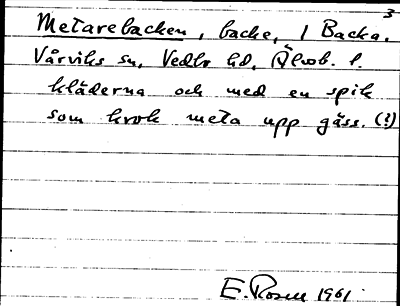 3
Metarebacken, backe, 1 Backa.
Vårviks sn, Vedbo hd, Älvsb. l.
kläderna och med en spik
som krok meta upp gäss. (?)
E. Rosell 1961